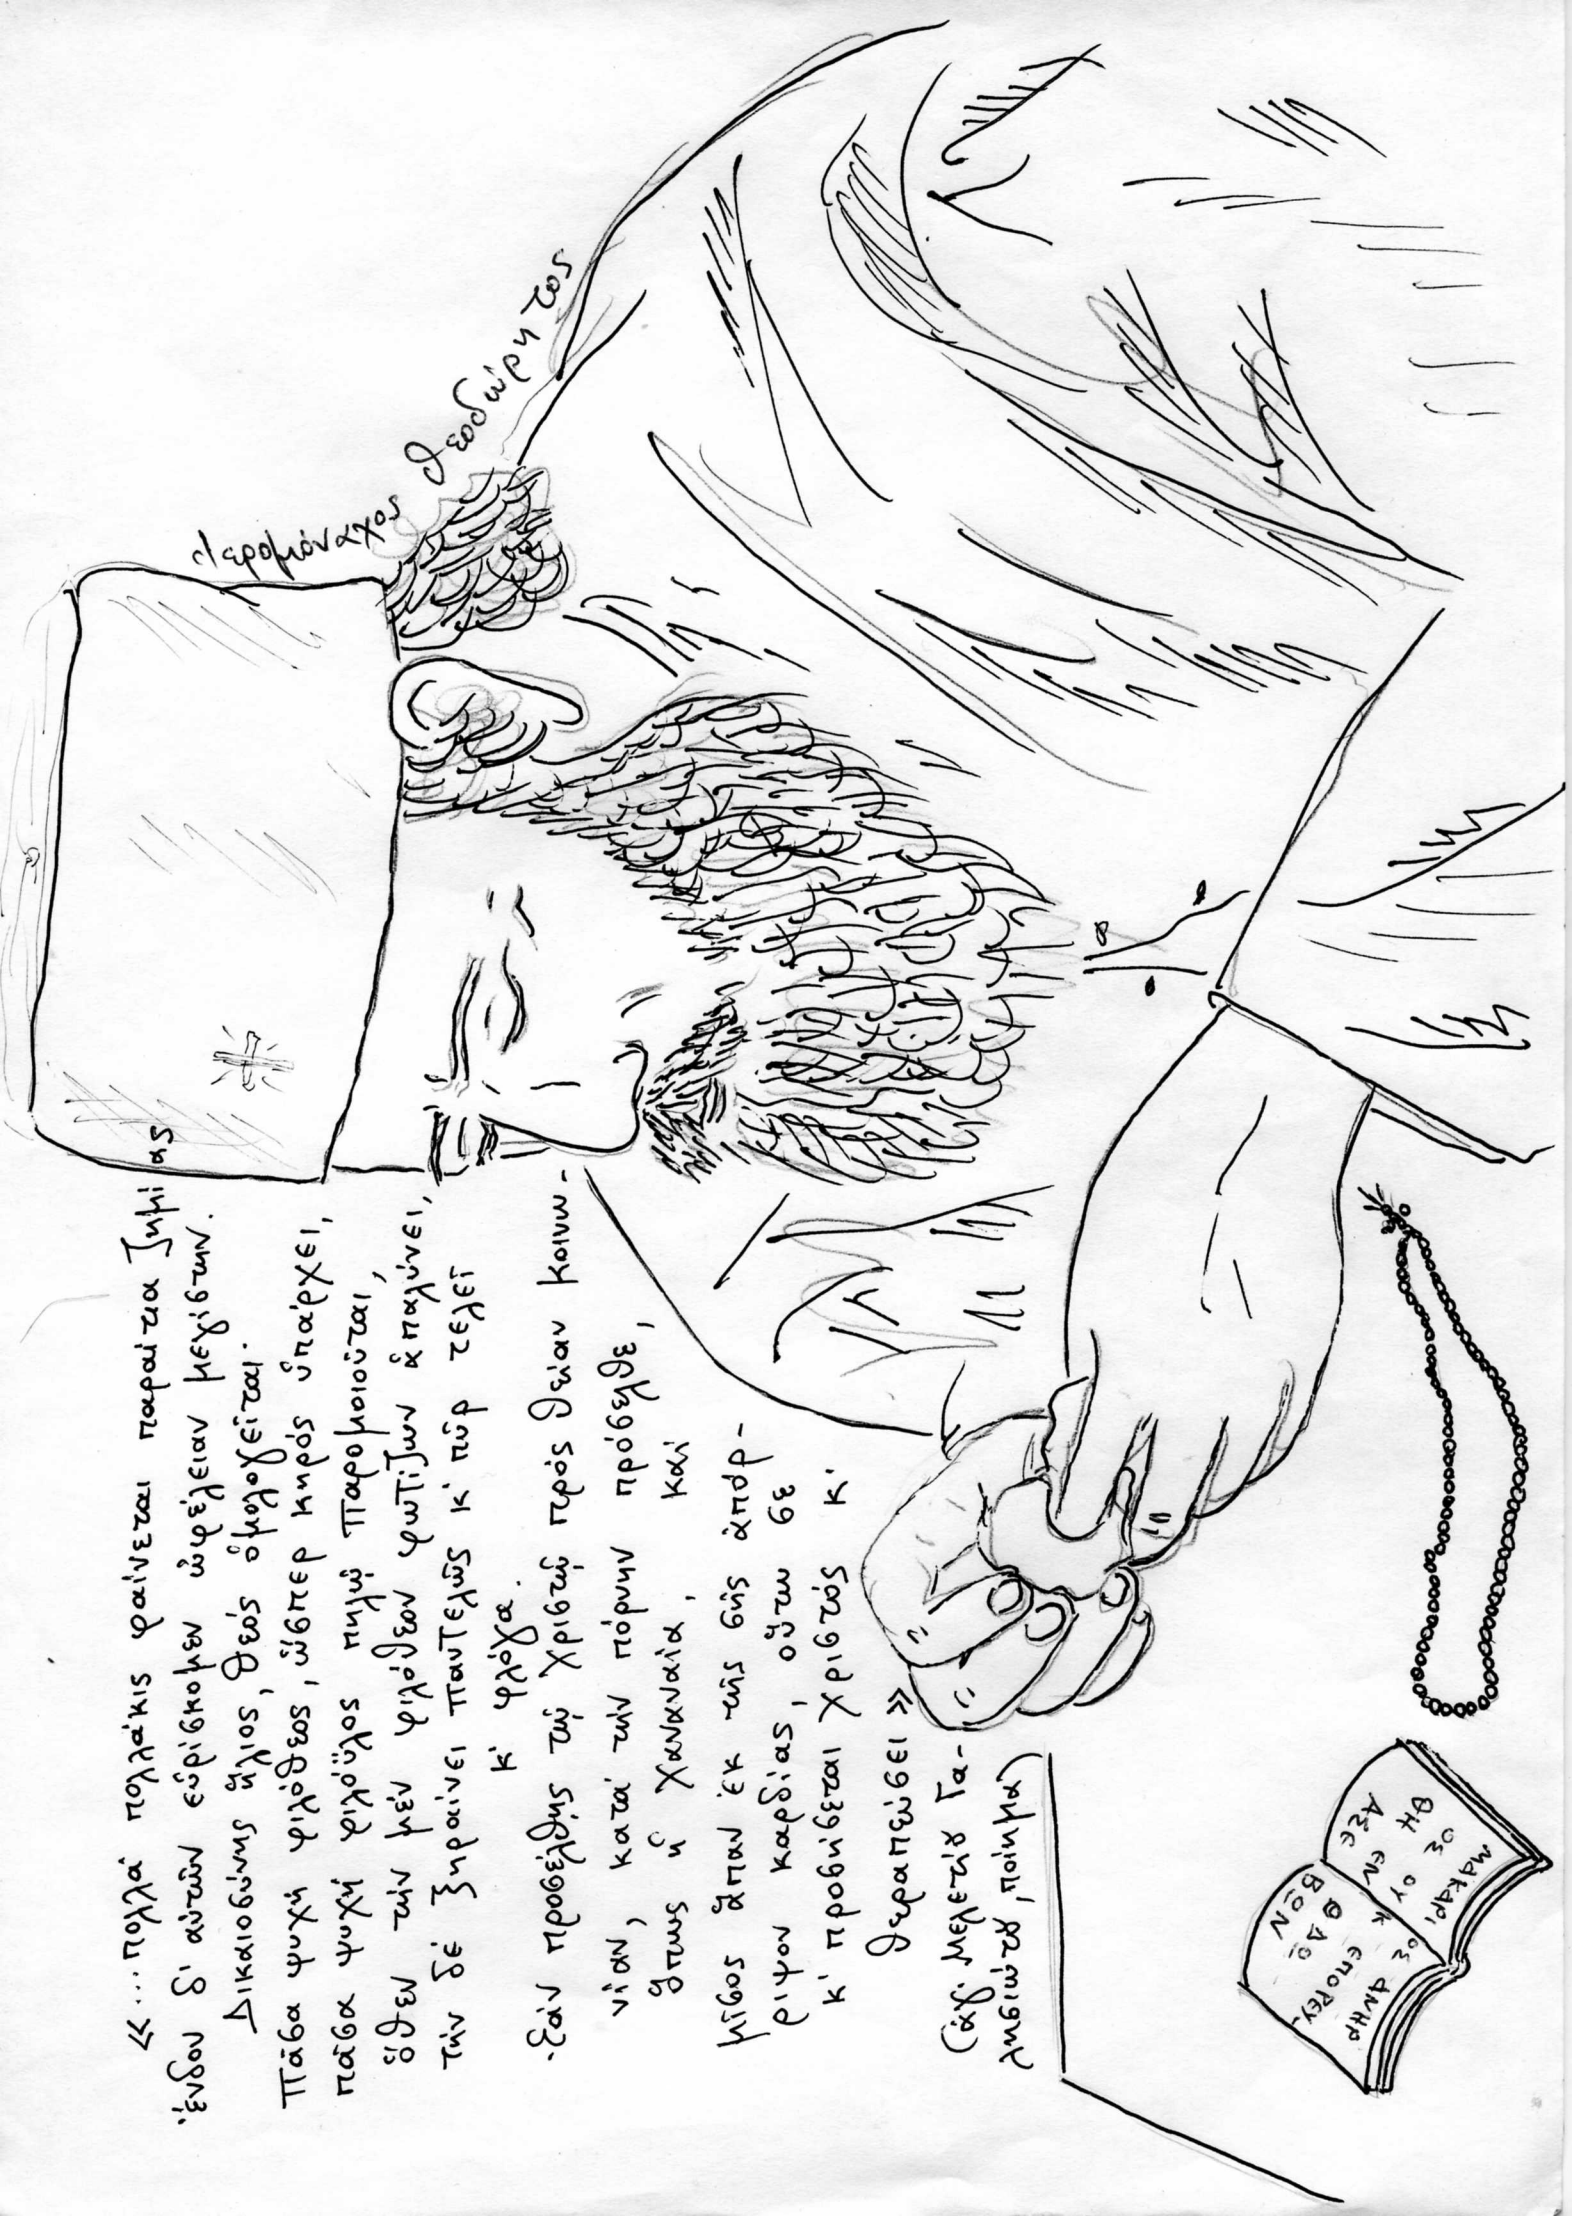 Ἱερομόναχος Θεοδώρητος
«...πολλά πολλάκις φαίνεται παραίτια ζημίας
ἔνδον δ' αὐτῶν εὑρίσκομεν ὠφέλειαν μεγίστην.
Δικαιοσύνης ἥλιος, Θεός ὁμολογεῖται.
Πᾶσα ψυχή φιλόθεος, ὥσπερ κηρός ὑπάρχει,
πᾶσα ψυχή φιλόϋλος πηλῷ παρομοιοῦται,
ὅθεν τήν μέν φιλόθεον φωτίζων ἁπαλύνει,
τήν δέ ξηραίνει παντελῶς κ' πῦρ τελεῖ
κ' φλόγα.
Ἐάν προσέλθῃς τῷ Χριστῷ πρός θείαν κοινω-
νίαν, κατά τήν πόρνην πρόσελθε,
ὅπως ἡ Χαναναία, καί
μῖσος ἅπαν ἐκ τῆς σῆς ἀπόρ-
ριψον καρδίας, οὕτω σε
κ' προσήσεται Χριστός κ'
θεραπεύσει»
(ἁγ. Μελετίου Γα-
λησιώτου, ποίημα)
ΜΑΚΑΡΙΟΣ ΑΝΗΡ
ΟΣ ΟΥΚ ΕΠΟΡΕΥ-
ΘΗ ΕΝ ΟΔΩ
ΑΣΕΒΩΝ